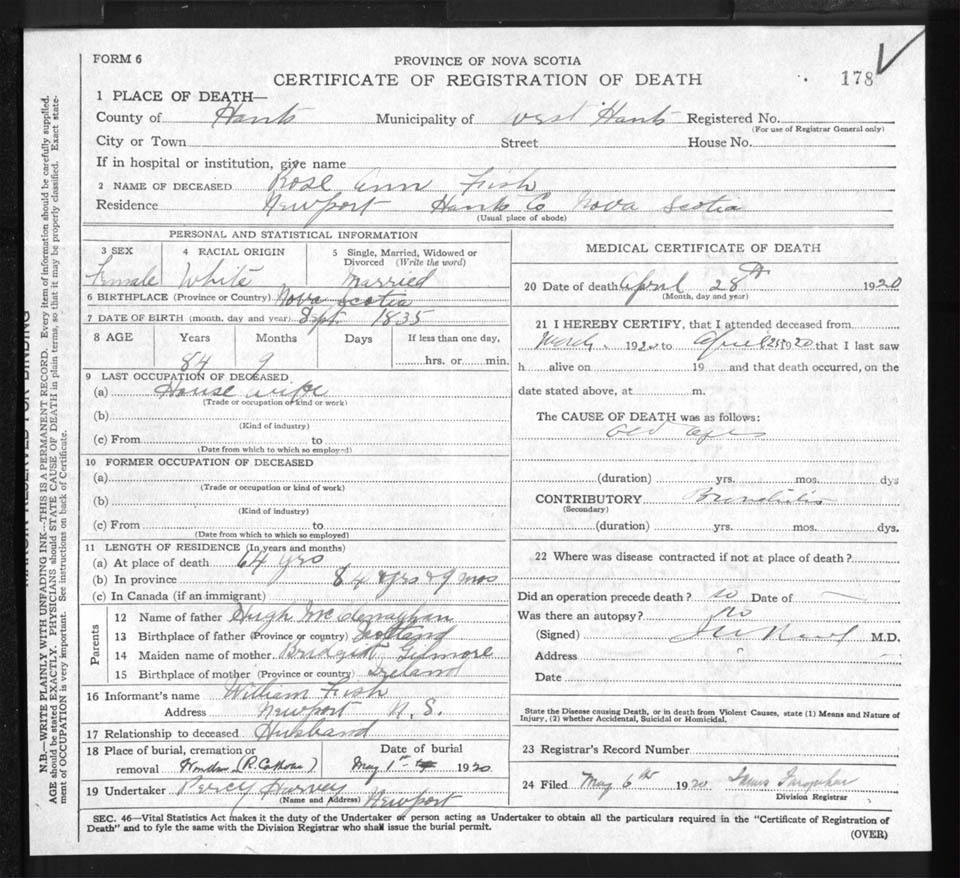 FORM 6
PROVINCE OF NOVA SCOTIA
CERTIFICATE OF REGISTRATION OF DEATH
178
1 PLACE OF DEATH—
County of Hants Municipality of West Hants Registered No.
(For use of Registrar General only)
City or Town Street House No.
If in hospital or institution, give name
2 NAME OF DECEASED Rose Ann Fish
Residence Newport Hants Co Nova Scotia
(Usual place of abode)
PERSONAL AND STATISTICAL INFORMATION
3 SEX 4 RACIAL ORIGIN 5 Single, Married, Widowed or Divorced (Write the word)
Female White Married
6 BIRTHPLACE (Province or Country) Nova Scotia
7 DATE OF BIRTH (month, day and year) Sept. 1835
8 AGE Years Months Days If less than one day,
84 9 hrs. or min.
9 LAST OCCUPATION OF DECEASED
(a) House wife
(Trade or occupation or kind or work)
(b)
(Kind of industry)
(c) From to
(Date from which to which so employed)
10 FORMER OCCUPATION OF DECEASED
(a)
(Trade or occupation or kind of work)
(b)
(Kind of industry)
(c) From to
(Date from which to which so employed)
11 LENGTH OF RESIDENCE (In years and months)
(a) At place of death 64 yrs
(b) In province 84 yrs & 9 mos
(c) In Canada (if an immigrant)
Parents
12 Name of father Hugh
13 Birthplace of father (Province or country) Scotland
14 Maiden name of mother Bridget Gilmore
15 Birthplace of mother (Province or country) Ireland
16 Informant's name William Fish
Address Newport N.S.
17 Relationship to deceased Husband
18 Place of burial, cremation or removal Windsor (R. Catholic)
Date of burial May 1st 1920
19 Undertaker Percy Harvey
(Name and Address) Newport
MEDICAL CERTIFICATE OF DEATH
20 Date of death April 28th 1920
(Month, day and year)
21 I HEREBY CERTIFY, that I attended deceased from
March 1920 to April 1920 that I last saw
h alive on 19 and that death occurred, on the
date stated above, at m.
The CAUSE OF DEATH was as follows:
Old age
(duration) yrs. mos. dys
CONTRIBUTORY Bronchitis
(Secondary)
(duration) yrs. mos. dys.
22 Where was disease contracted if not at place of death?
Did an operation precede death? no Date of —
Was there an autopsy? no
(Signed) M.D.
Address
Date
State the Disease causing Death, or in death from Violent Causes, state (1) Means and Nature of
Injury, (2) whether Accidental, Suicidal or Homicidal.
23 Registrar's Record Number
24 Filed May 6th 1920 James Farquhar
Division Registrar
SEC. 46—Vital Statistics Act makes it the duty of the Undertaker or person acting as Undertaker to obtain all the particulars required in the "Certificate of Registration of
Death" and to fyle the same with the Division Registrar who shall issue the burial permit.
(OVER)
N.B.—WRITE PLAINLY WITH UNFADING INK—THIS IS A PERMANENT RECORD. Every item of information should be carefully supplied.
AGE should be stated EXACTLY. PHYSICIANS should STATE CAUSE OF DEATH in plain terms, so that it may be properly classified. Exact statement of OCCUPATION is very important. See instructions on back of Certificate.